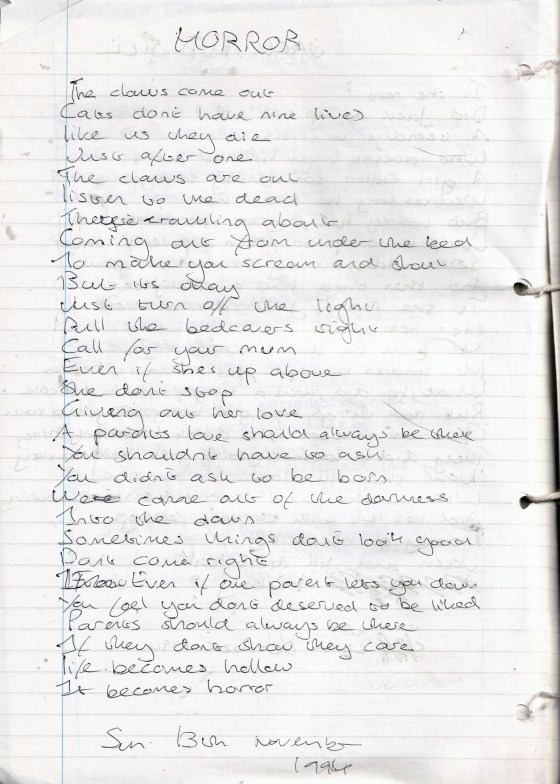 HORROR
The claws come out
Cats dont have nine lives
like us they die
Just after one
The claws are out
listen to the dead
There crawling about
Coming out from under the bed
To make you scream and shout
But its okay
Just turn off the light
Pull the bedcovers right
Call for your mum
Even if shes up above
She dont stop
Giving out her love
A parents love should always be there
You shouldnt have to ask
You didnt ask to be born
We come out of the darness
Into the dawn
Sometimes things dont look good
Dont come right
Even if one parent lets you down
You feel you dont deserved to be liked
Parents should always be there
If they dont show they care
life becomes hollow
It becomes horror
Sun 13th November
1994